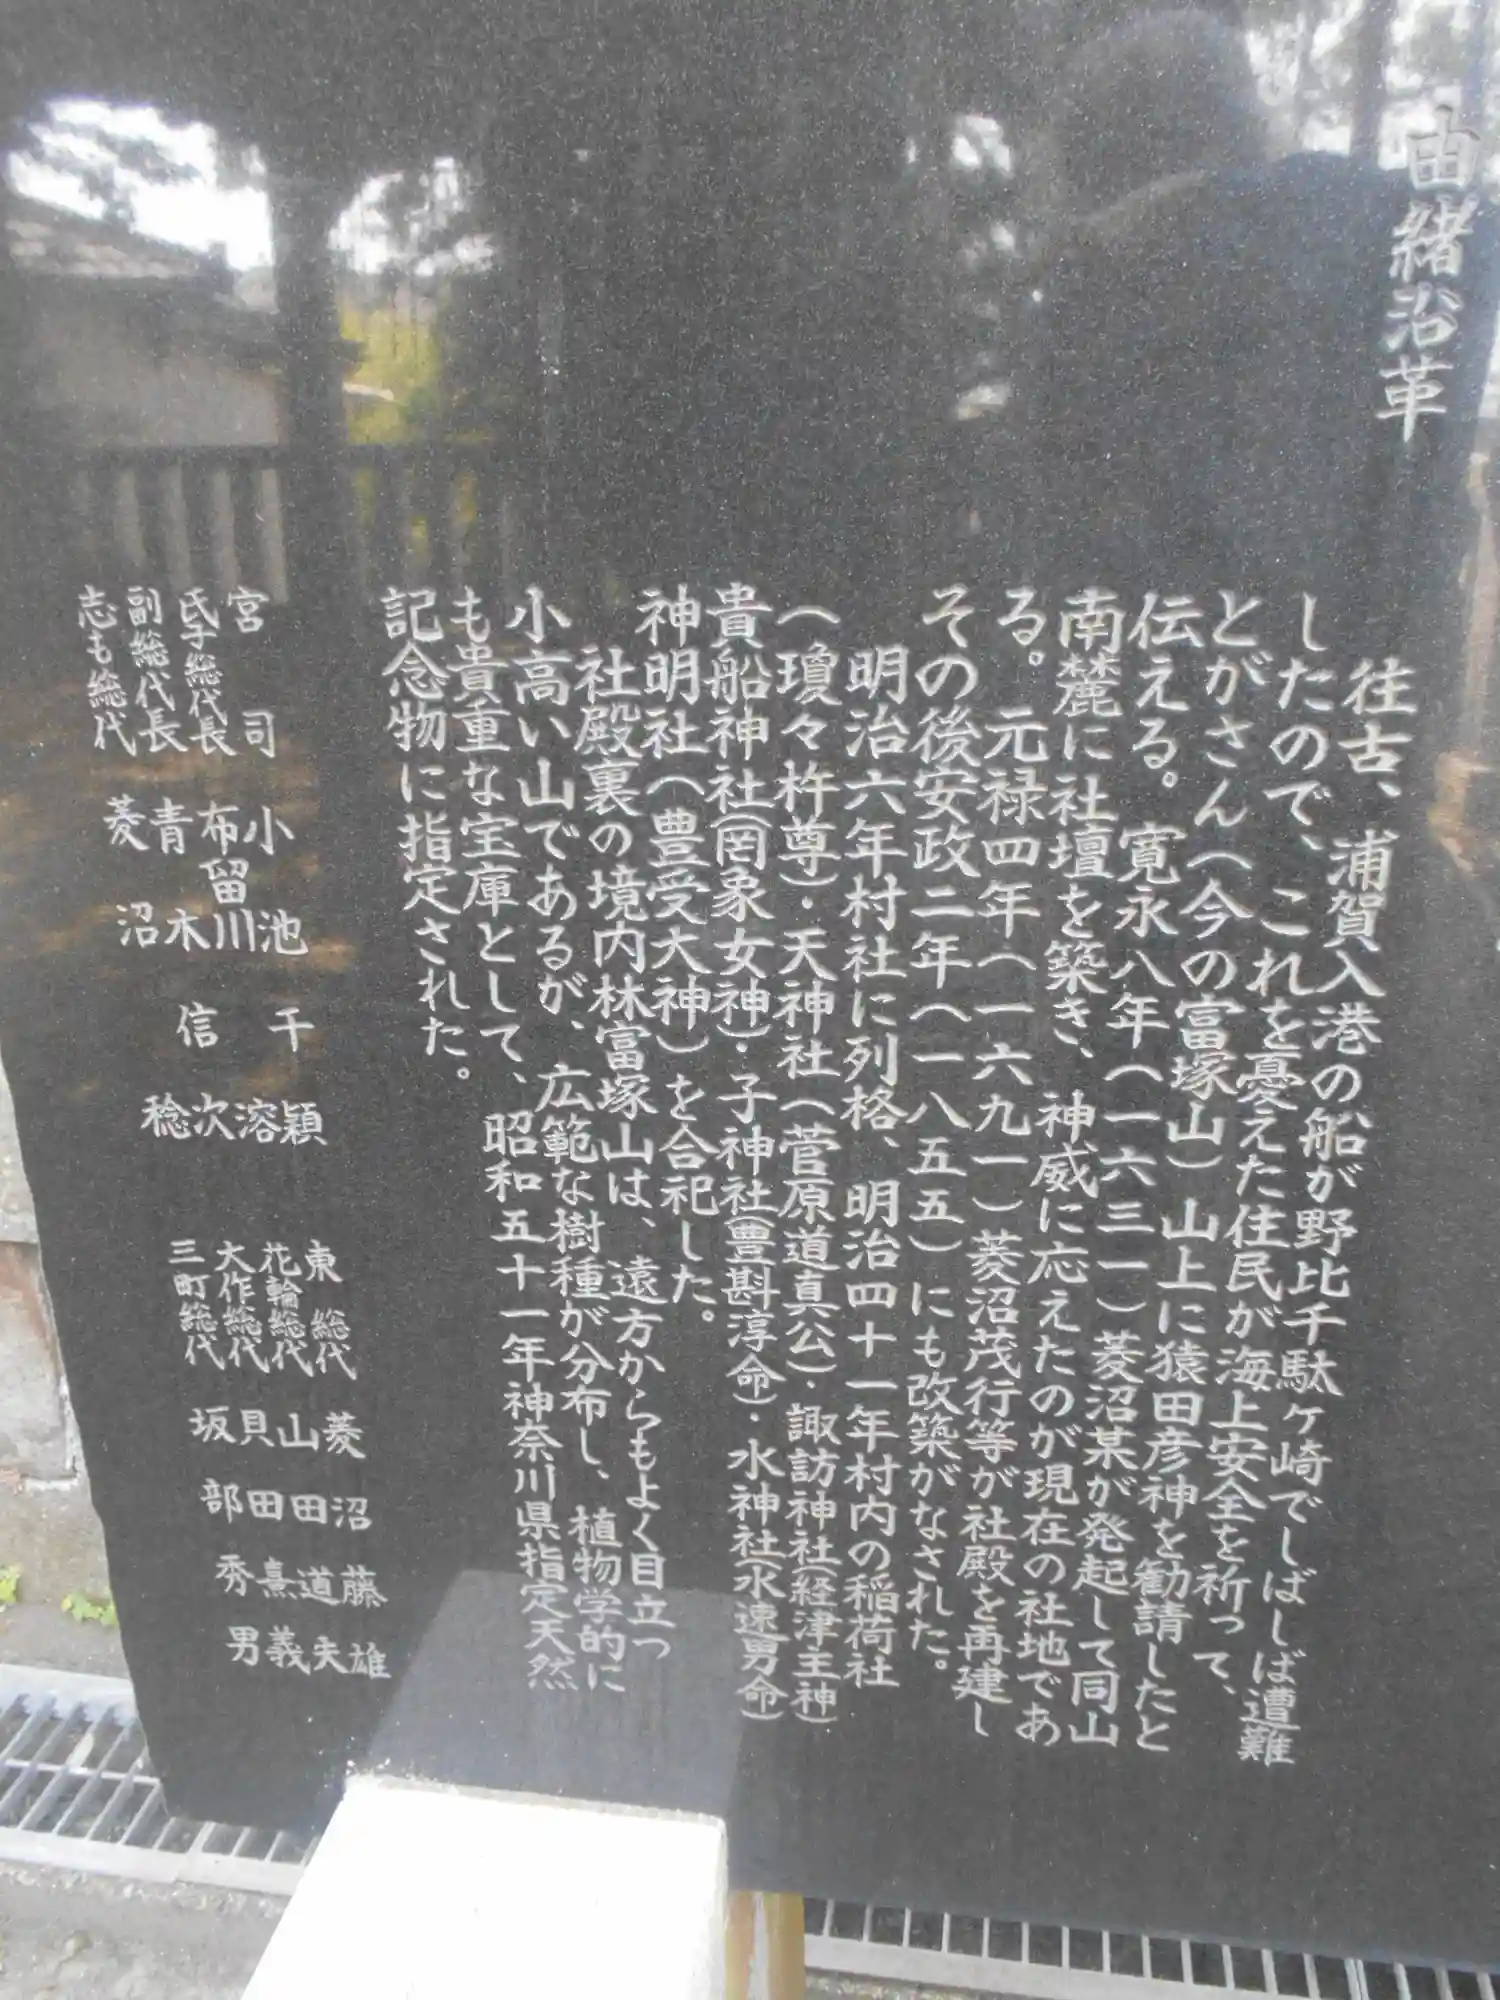 由緒沿革
往古、浦賀入港の船が野比千駄ヶ崎でしばしば遭難
したので、これを憂えた住民が海上安全を祈って、
とがさん(今の富塚山)山上に猿田彦神を勧請したと
伝える。寛永八年(一六三一)菱沼某が発起して同山
南麓に社壇を築き、神威に応えたのが現在の社地であ
る。元禄四年(一六九一)菱沼茂行等が社殿を再建し
その後安政二年(一八五五)にも改築がなされた。
明治六年村社に列格、明治四十一年村内の稲荷社
(瓊々杵尊)・天神社(菅原道真公)・諏訪神社(経津主神)
貴船神社(罔象女神)・子神社(豊斟渟命)・水神社(水速男命)
神明社(豊受大神)を合祀した。
社殿裏の境内林富塚山は、遠方からもよく目立つ
小高い山であるが、広範な樹種が分布し、植物学的に
も貴重な宝庫として、昭和五十一年神奈川県指定天然
記念物に指定された。
宮司 小池干穎
氏子総代長 布留川溶
副総代長 青木信次
志も総代 菱沼稔
東総代 菱沼藤雄
花輪総代 山田道夫
大作総代 貝田熹義
三町総代 坂部秀男